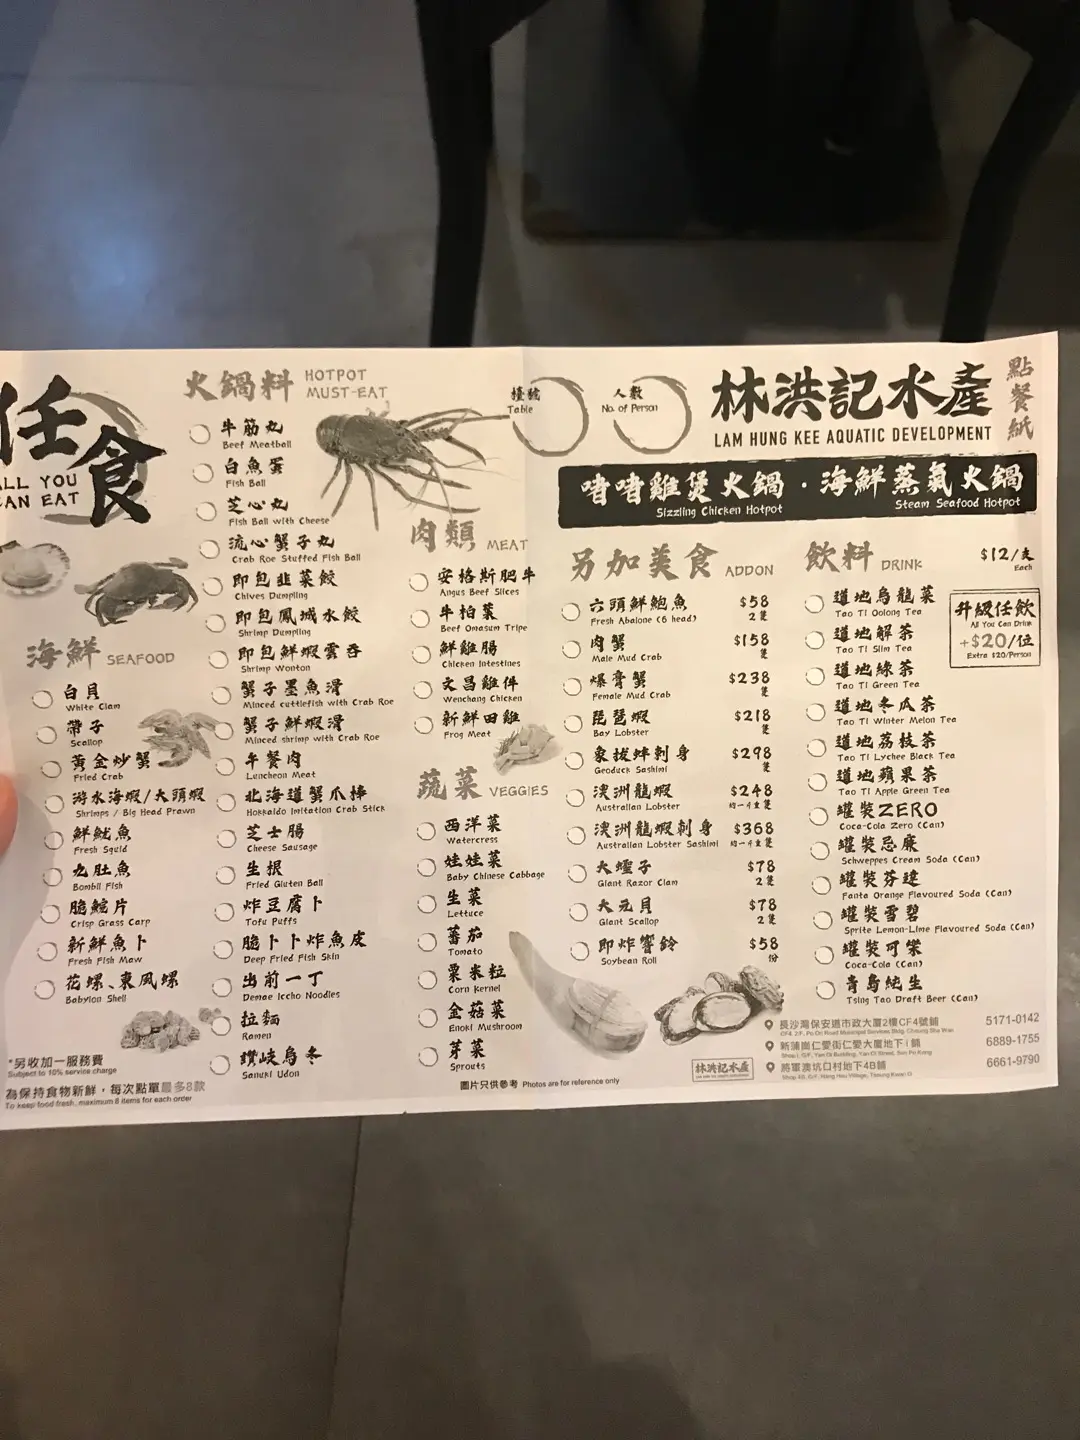 任食
ALL YOU
CAN EAT
海鮮 SEAFOOD
白貝
White Clam
帶子
Scallop
黃金炒蟹
Fried Crab
游水海蝦/大頭蝦
Shrimps / Big Head Prawn
鮮魷魚
Fresh Squid
九肚魚
Bombil Fish
脆鯇片
Crisp Grass Carp
新鮮魚卜
Fresh Fish Maw
花螺、東風螺
Babylon Shell
*另收加一服務費
Subject to 10% service charge
為保持食物新鮮，每次點單最多8款
To keep food fresh, maximum 8 items for each order
火鍋料 HOTPOT
MUST-EAT
牛筋丸
Beef Meatball
白魚蛋
Fish Ball
芝心丸
Fish Ball with Cheese
流心蟹子丸
Crab Roe Stuffed Fish Ball
即包韭菜餃
Chives Dumpling
即包鳳城水餃
Shrimp Dumpling
即包鮮蝦雲吞
Shrimp Wonton
蟹子墨魚滑
Minced cuttlefish with Crab Roe
蟹子鮮蝦滑
Minced shrimp with Crab Roe
午餐肉
Luncheon Meat
北海道蟹爪捧
Hokkaido Imitation Crab Stick
芝士腸
Cheese Sausage
生根
Fried Gluten Ball
炸豆腐卜
Tofu Puffs
脆卜卜炸魚皮
Deep Fried Fish Skin
出前一丁
Demae Iccho Noodles
拉麵
Ramen
讚岐烏冬
Sanuki Udon
肉類 MEAT
安格斯肥牛
Angus Beef Slices
牛柏葉
Beef Omasum Tripe
鮮雞腸
Chicken Intestines
文昌雞件
Wenchang Chicken
新鮮田雞
Frog Meat
蔬菜 VEGGIES
西洋菜
Watercress
娃娃菜
Baby Chinese Cabbage
生菜
Lettuce
蕃茄
Tomato
粟米粒
Corn Kernel
金菇菜
Enoki Mushroom
芽菜
Sprouts
圖片只供參考 Photos are for reference only
檯號
Table
人數
No. of Person
林洪記水產
LAM HUNG KEE AQUATIC DEVELOPMENT
點餐紙
啫啫雞煲火鍋・海鮮蒸氣火鍋
Sizzling Chicken Hotpot Steam Seafood Hotpot
另加美食 ADDON
六頭鮮鮑魚 $58
Fresh Abalone (6 head) 2隻
肉蟹 $158
Male Mud Crab 隻
爆膏蟹 $238
Female Mud Crab 隻
琵琶蝦 $218
Bay Lobster 隻
象拔蚌刺身 $298
Geoduck Sashimi 隻
澳洲龍蝦 $248
Australian Lobster 約一斤重隻
澳洲龍蝦刺身 $368
Australian Lobster Sashimi 約一斤重隻
大蟶子 $78
Giant Razor Clam 2隻
大元貝 $78
Giant Scallop 2隻
即炸響鈴 $58
Soybean Roll 份
飲料 DRINK
$12/支
Each
道地烏龍茶
Tao Ti Oolong Tea
道地解茶
Tao Ti Slim Tea
道地綠茶
Tao Ti Green Tea
道地冬瓜茶
Tao Ti Winter Melon Tea
道地荔枝茶
Tao Ti Lychee Black Tea
道地蘋果茶
Tao Ti Apple Green Tea
罐裝ZERO
Coca-Cola Zero (Can)
罐裝忌廉
Schweppes Cream Soda (Can)
罐裝芬達
Fanta Orange Flavoured Soda (Can)
罐裝雪碧
Sprite Lemon-Lime Flavoured Soda (Can)
罐裝可樂
Coca-Cola (Can)
青島純生
Tsing Tao Draft Beer (Can)
升級任飲
All You Can Drink
+$20/位
Extra $20/Person
林洪記水產
長沙灣保安道市政大廈2樓CF4號鋪 5171-0142
CF4, 2/F, Po On Road Municipal Services Bldg, Cheung Sha Wan
新蒲崗仁愛街仁愛大廈地下1鋪 6889-1755
Shop 1, G/F, Yan Oi Building, Yan Oi Street, San Po Kong
將軍澳坑口村地下4B鋪 6661-9790
Shop 4B, G/F, Hang Hau Village, Tseung Kwan O